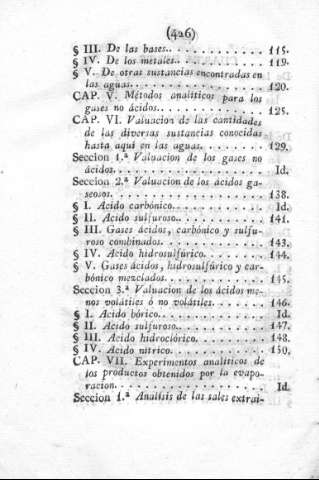 (426)
§ III. De las bases.. . . . . . . . . . . . 115.
§ IV. De los metales.. . . . . . . . . . . 119.
§ V. De otras sustancias encontradas en
las aguas.. . . . . . . . . . . . . . . . 120.
CAP. V. Métodos analíticos para los
gases no ácidos.. . . . . . . . . . . . . 125.
CAP. VI. Valuacion de las cantidades
de las diversas sustancias conocidas
hasta aquí en las aguas. . . . . . . . . 129.
Seccion 1.ª Valuacion de los gases no
ácidos. . . . . . . . . . . . . . . . . . Id.
Seccion 2.ª Valuacion de los ácidos ga-
seosos. . . . . . . . . . . . . . . . . . 138.
§ I. Acido carbónico.. . . . . . . . . . . Id.
§ II. Acido sulfuroso.. . . . . . . . . . 141.
§ III. Gases ácidos, carbónico y sulfu-
roso combinados. . . . . . . . . . . . . 143.
§ IV. Acido hidrosulfúrico. . . . . . . . 144.
§ V. Gases ácidos, hidrosulfúrico y car-
bónico mezclados. . . . . . . . . . . . . 145.
Seccion 3.ª Valuacion de los ácidos me-
nos volátiles ó no volátiles. . . . . . . 146.
§ I. Acido bórico.. . . . . . . . . . . . Id.
§ II. Acido sulfuroso.. . . . . . . . . . 147.
§ III. Acido hidroclórico. . . . . . . . . 148.
§ IV. Acido nítrico. . . . . . . . . . . . 150.
CAP. VII. Experimentos analíticos de
los productos obtenidos por la evapo-
racion. . . . . . . . . . . . . . . . . . Id.
Seccion 1.ª Analisis de las sales extrai-